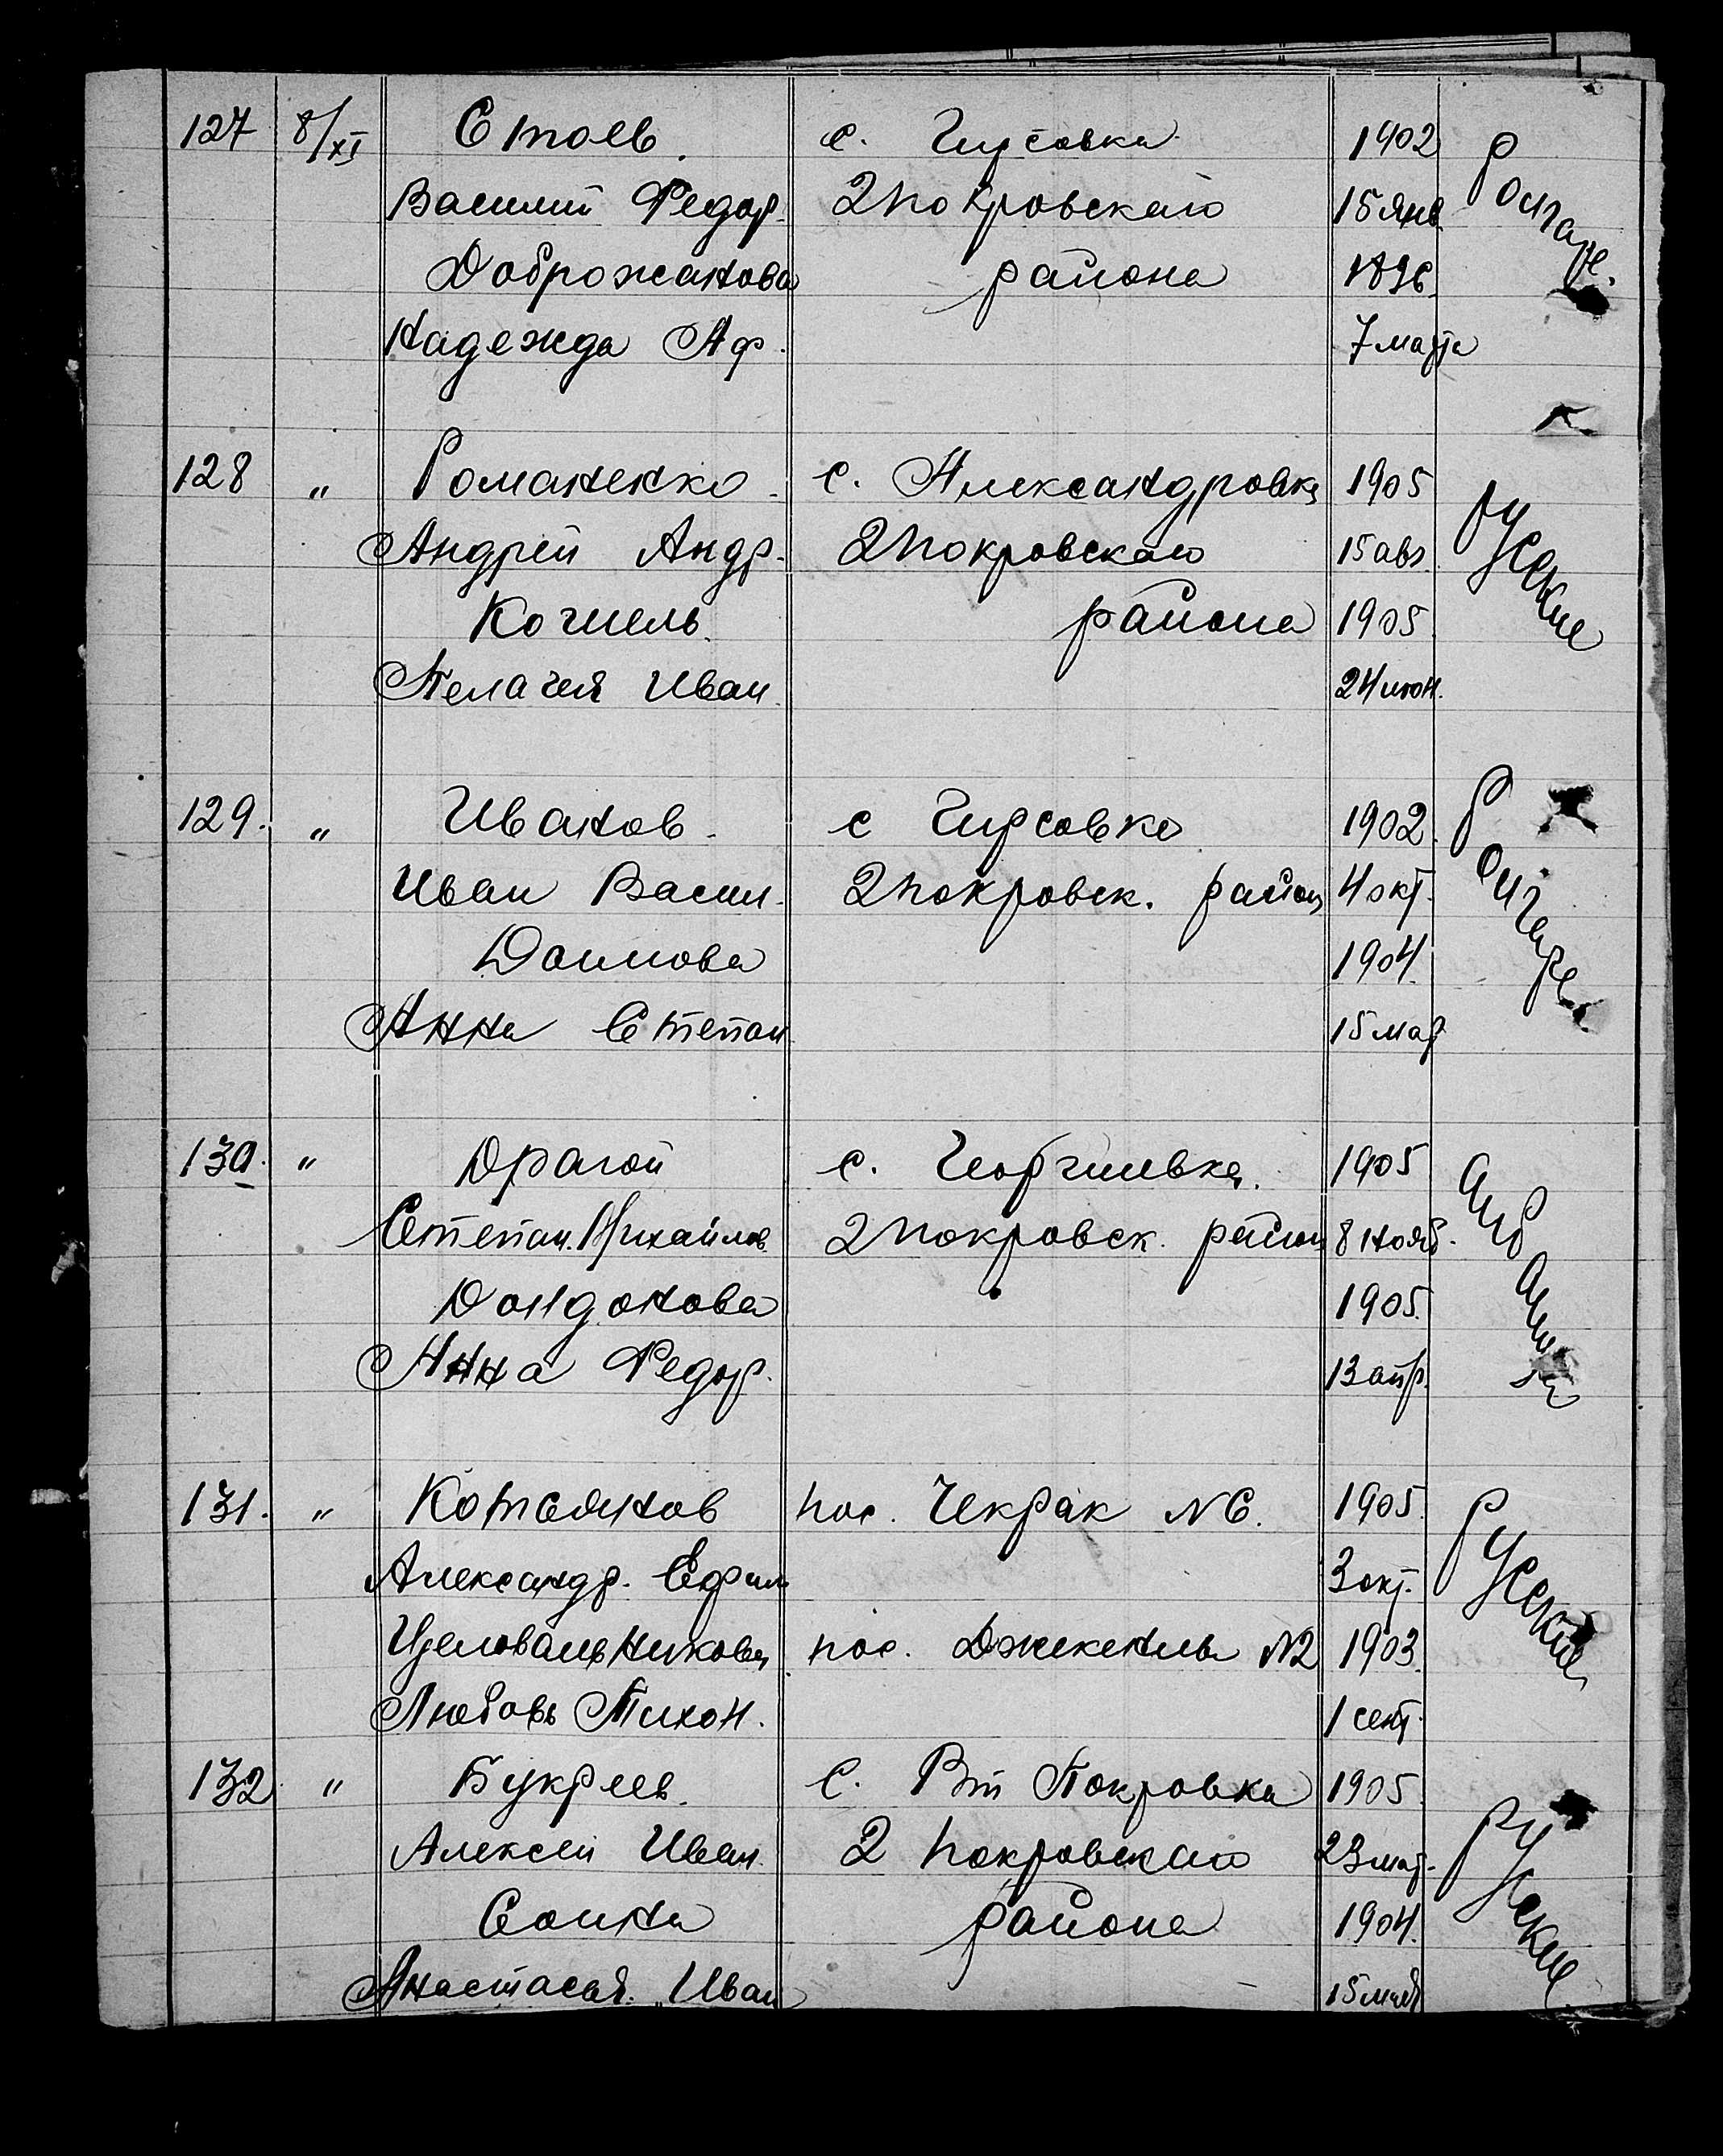 127 8/XI Стоев. с. Гирсовка 1902 Болгаре.
Василий Федор. 2 Покровского 15 янв.
Доброжанова района 1896.
Надежда Аф. 7 марта
128 " Романенко. с. Александровка 1905 Русские
Андрей Андр. 2 Покровского 15 авг.
Кочмель. района 1905.
Пелагея Иван. 24 июн.
129. " Иванов. с Гирсовка 1902. Болгаре
Иван Васил. 2 покровск. район 4 окт.
Доимова 1904.
Анна Степан 15 мар
130. " Драгой с. Георгиевка. 1905 Албанцы
Степан. Михайлов. 2 покровск. район 8 нояб.
Дондонова 1905.
Анна Федор. 13 апр.
131. " Котельнов пос. Чекрак N 6. 1905. Русские
Александр. Ефим 3 окт.
Целовальникова пос. Джекенлы N2 1903.
Любовь Тихон. 1 сент.
132. " Букреев. с. Вт Покровка 1905. Русские
Алексей Иван. 2 Покровского 23 мар.
Соина района 1904.
Анастасья. Иван 15 мая